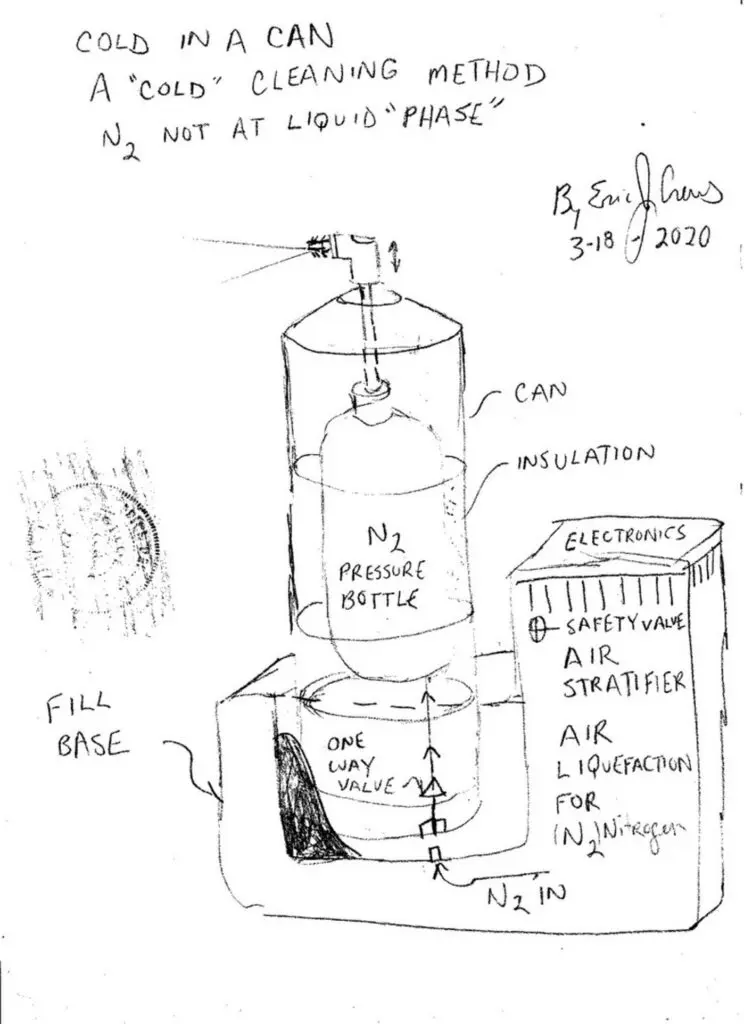 COLD IN A CAN
A "COLD" CLEANING METHOD
N2 NOT AT LIQUID "PHASE"
By Eric J
3-18-2020
CAN
INSULATION
N2
PRESSURE
BOTTLE
ELECTRONICS
SAFETY VALVE
AIR
STRATIFIER
AIR
LIQUEFACTION
FOR
(N2) Nitrogen
FILL
BASE
ONE
WAY
VALVE
N2 IN